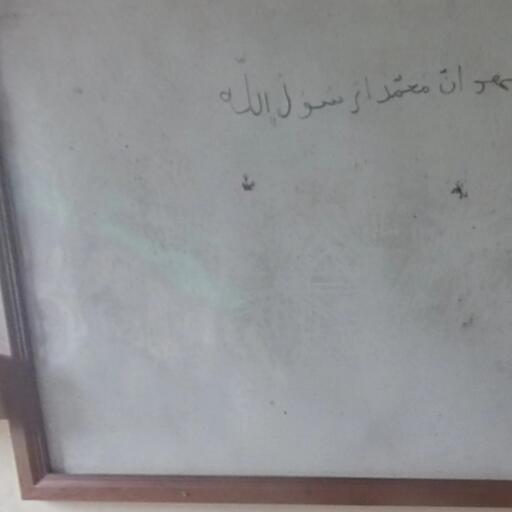 ان محمدا رسول الله